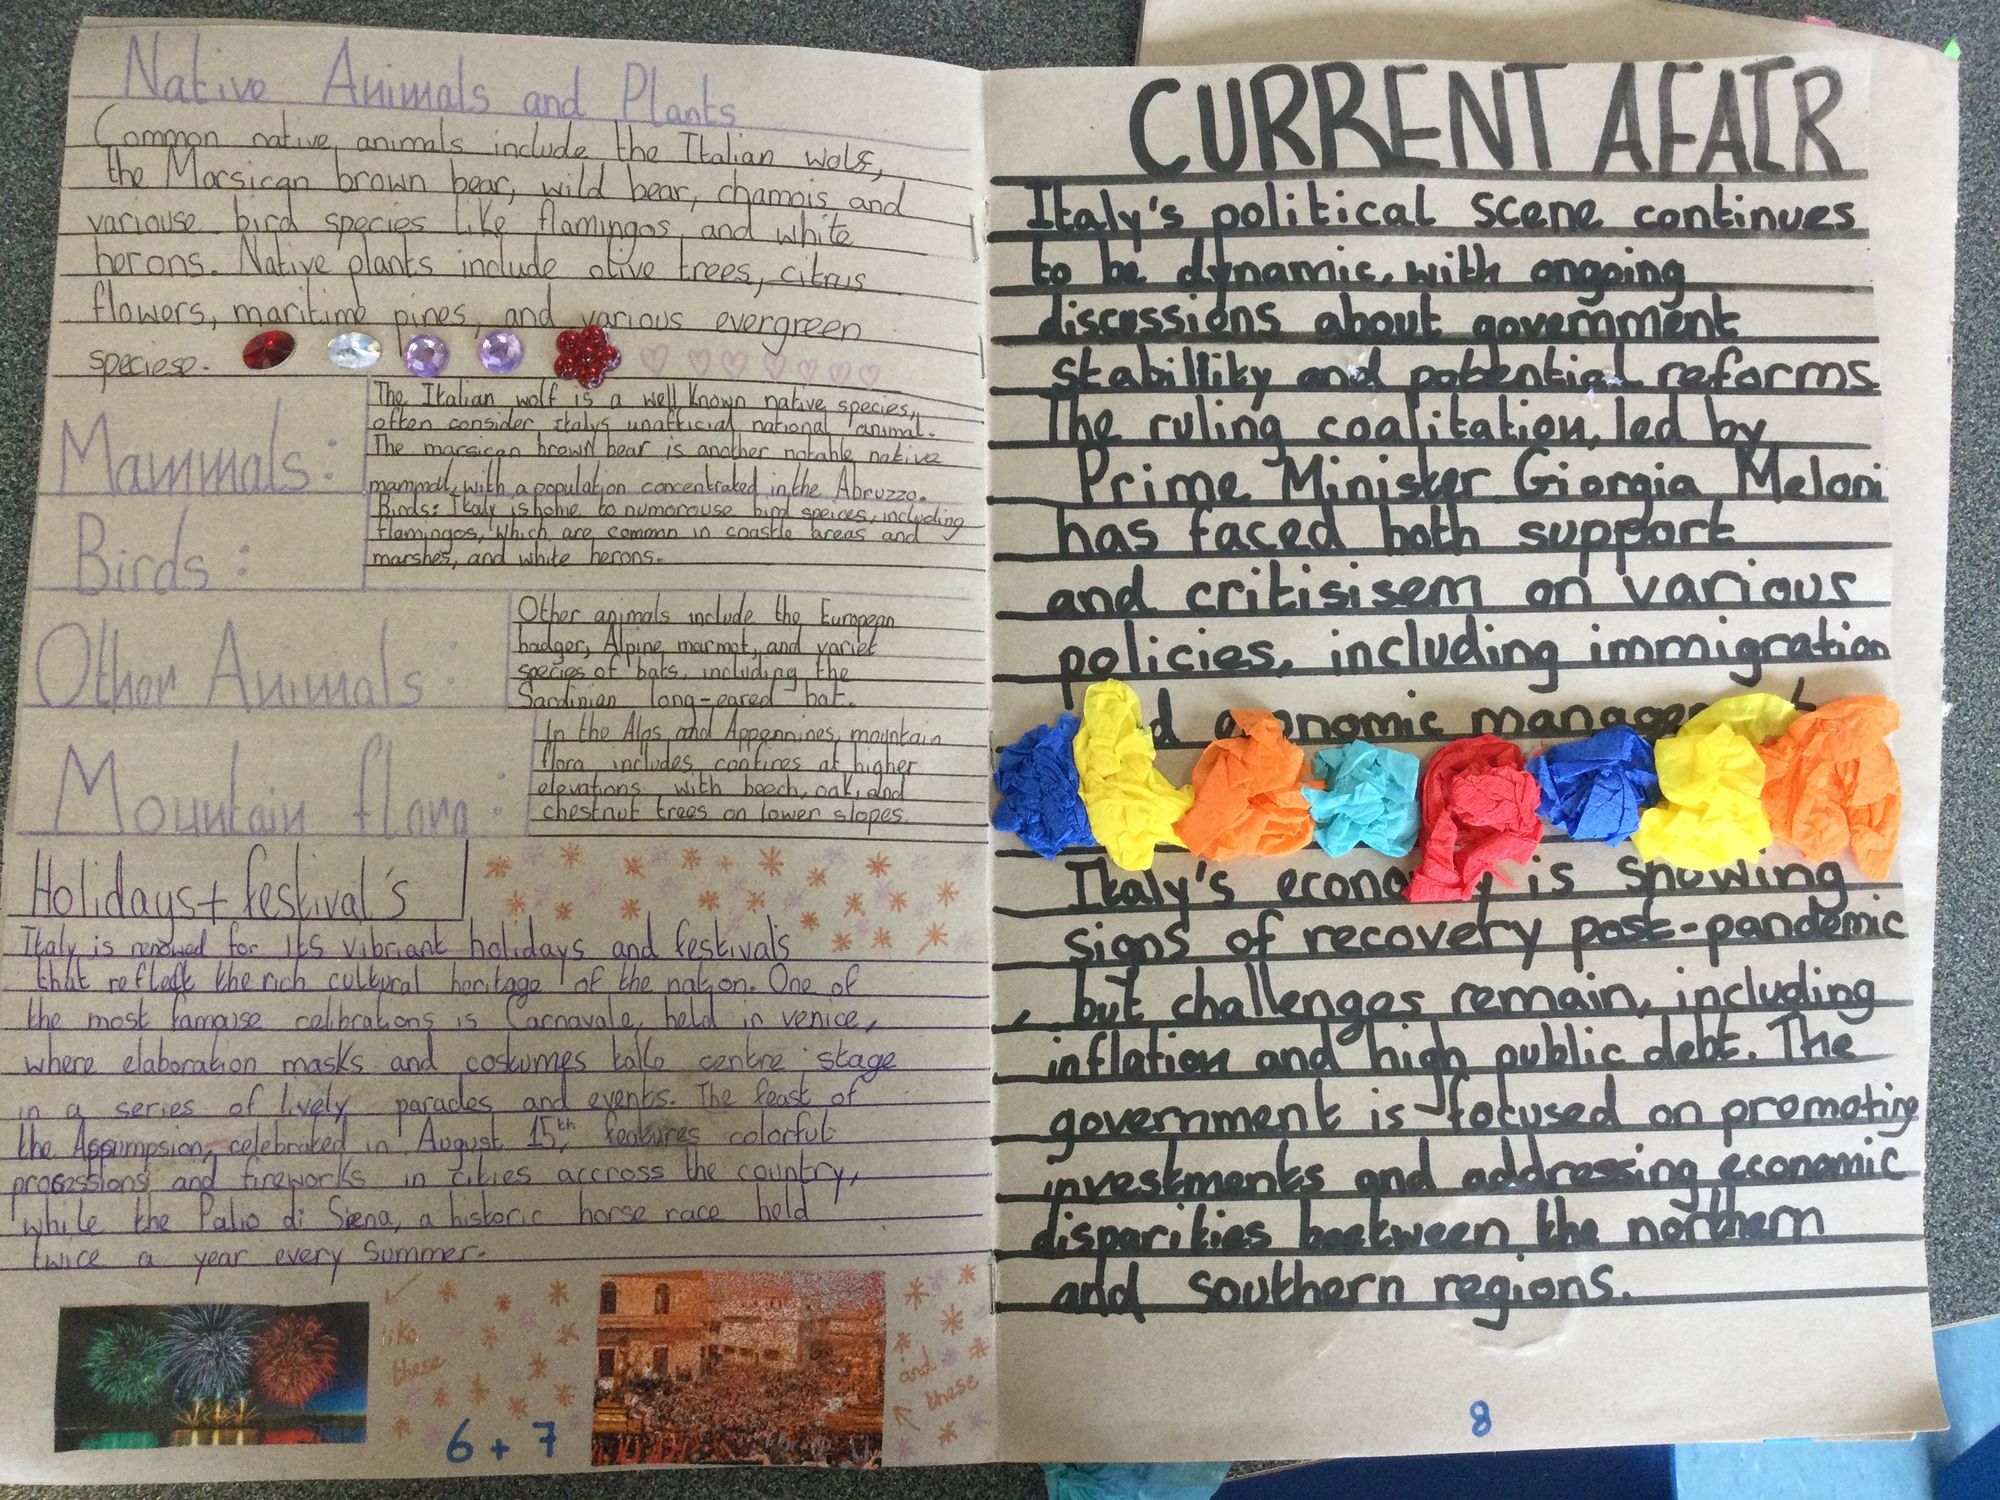 Native Animals and Plants
Common native animals include the Italian wolf,
the Marsican brown bear, wild bear, chamois and
variouse bird species like flamingos, and white
herons. Native plants include olive trees, citrus
flowers, maritime pines, and various evergreen
speciese.
Mammals:
The Italian wolf is a well known native species,
often consider Italys unafficial national animal.
The marsican brown bear is another notable native
mammal, with a population concentrated in the Abruzzo.
Birds:
Birds: Italy is home to numorouse bird speices, including
flamingos, which are common in coastle areas and
marshes, and white herons.
Other Animals:
Other animals include the European
badger, Alpine marmot, and variet
species of bats, including the
Sardinian long-eared bat.
Mountain flora:
In the Alps and Appennines, mountain
flora includes confires at higher
elevations, with beech, oak, and
chestnut trees on lower slopes.
Holidays + festival's
Italy is renowed for its vibriant holidays and festivals
that reflect the rich cultural heritage of the nation. One of
the most famouse celibrations is Carnavale, held in venice,
where elaboration masks and costumes take centre stage
in a series of lively parades and events. The feast of
the Assumpsion, celebrated in August 15th, features colorful
processions and fireworks in cities accross the country,
while the Palio di Siena, a historic horse race held
twice a year every Summer.
like
these
and
these
6 + 7
CURRENT AFAIR
Italy's political scene continues
to be dynamic, with ongoing
discussions about government
stabillity and potential reforms
The ruling coalitation, led by
Prime Minister Giorgia Meloni
has faced both support
and critisisem on various
policies, including immigration
economic
Italy's is showing
signs of recovery post-pandemic
, but challenges remain, including
inflation and high public debt. The
government is focused on promoting
investments and addressing economic
disparities beetween the northern
and southern regions.
8